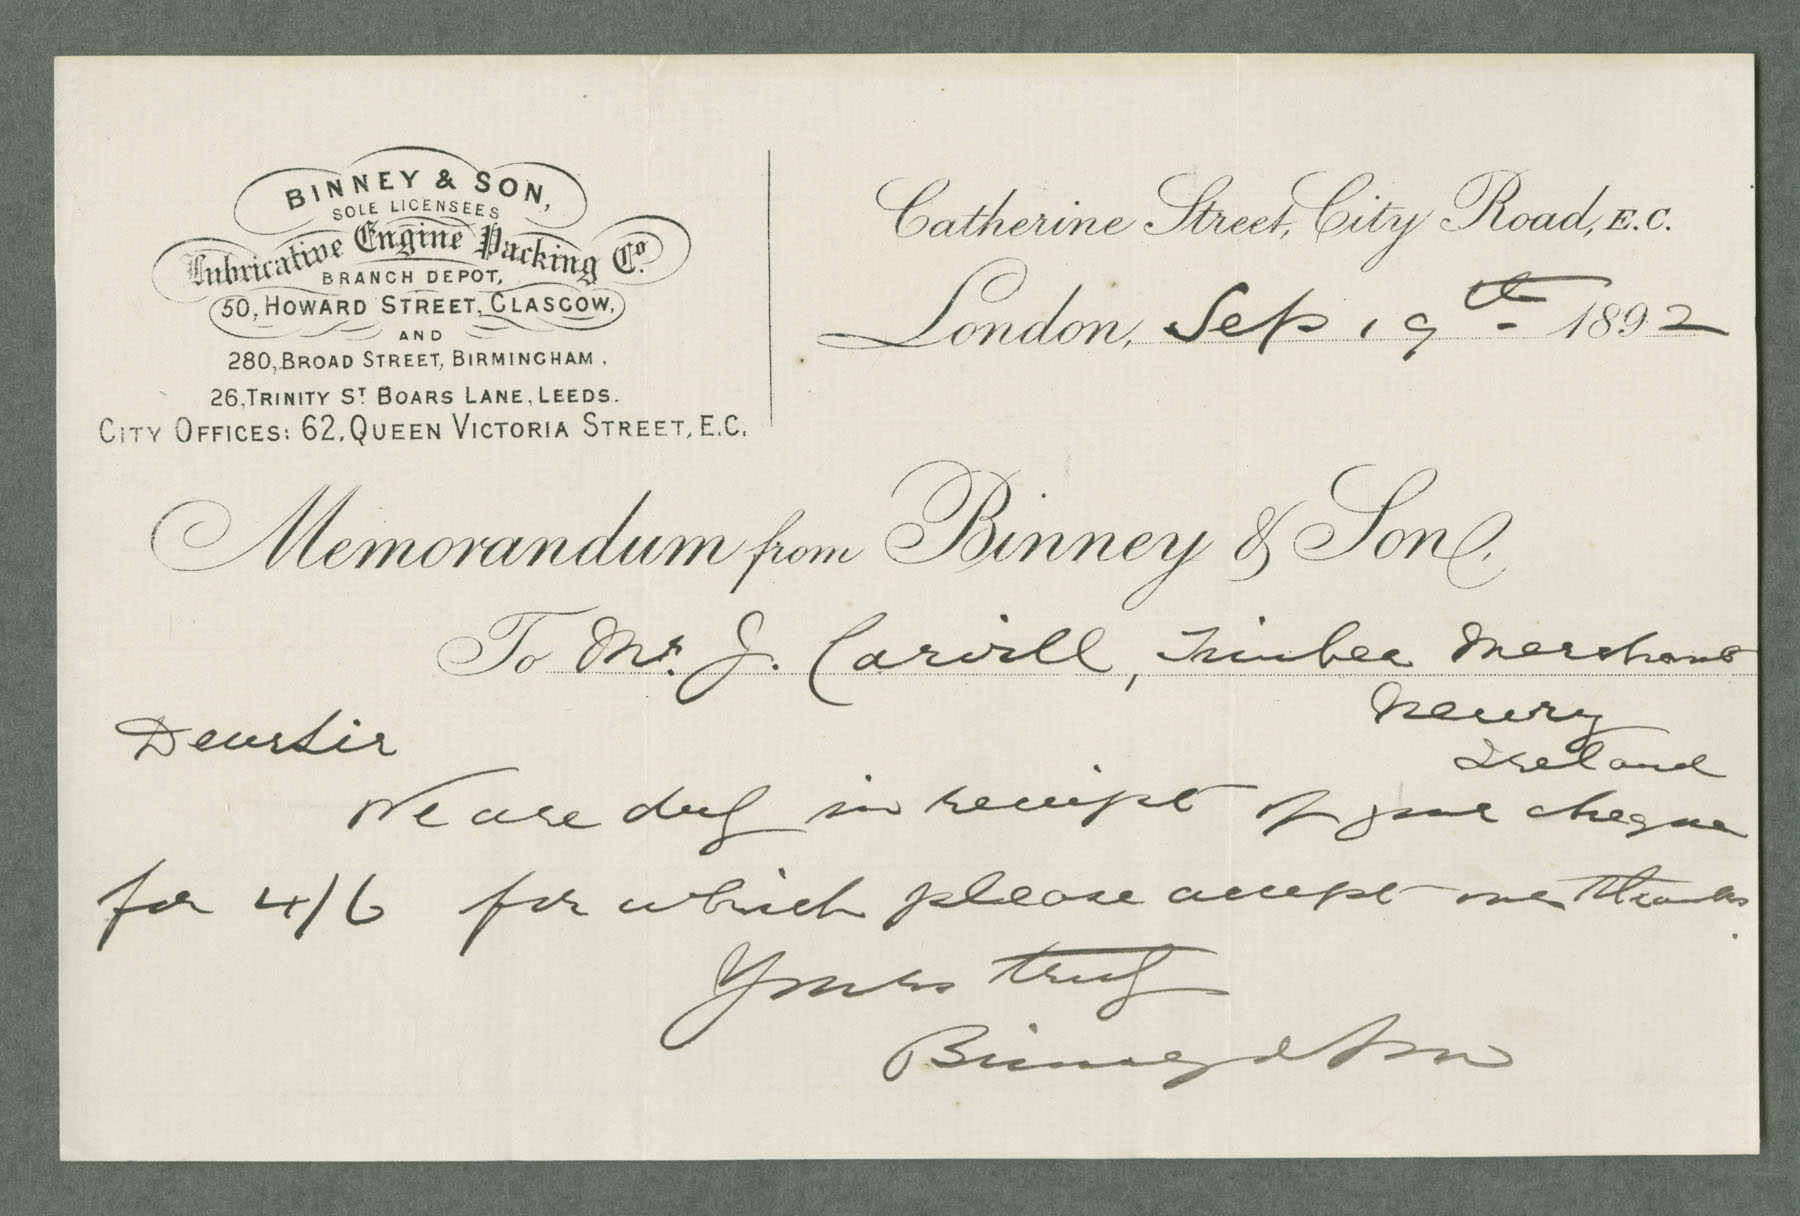 BINNEY & SON,
SOLE LICENSEES
Lubricative Engine Packing Co.
BRANCH DEPOT,
50, HOWARD STREET, GLASGOW,
AND
280, BROAD STREET, BIRMINGHAM.
26, TRINITY ST BOARS LANE, LEEDS.
CITY OFFICES: 62, QUEEN VICTORIA STREET, E.C.
Catherine Street, City Road, E.C.
London, Sep 19th 1892
Memorandum from Binney & Son.
To Mr. J. Carvill, Timber Merchant
Newry
Ireland
Dear Sir
We are duly in receipt of your cheque
for 4/6 for which please accept our thanks.
Yours truly
Binney & Son